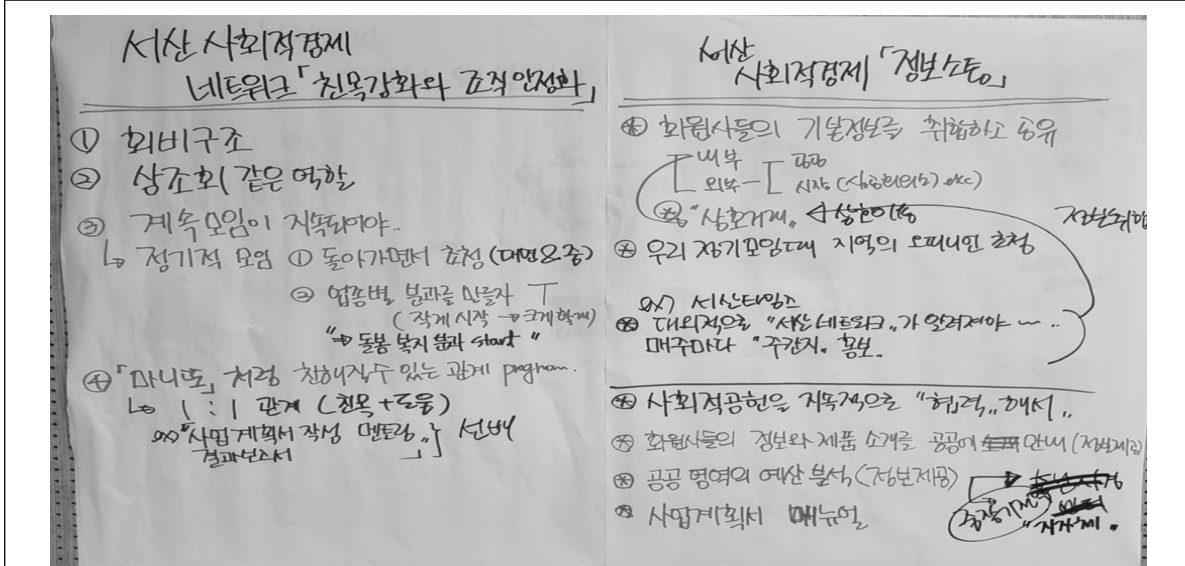 서산 사회적경제
네트워크「친목강화와 조직안정화」
① 회비구조
② 상조회 같은 역할
③ 계속 모임이 지속되어야..
↳ 정기적 모임 ① 돌아가면서 초청 (대면요중)
② 업종별 분과를 만들자
(작게 시작 → 크게 함께)
"→ 돌봄 복지 분과 start "
④「마니또」처럼 친해질수 있는 관계 program.
↳ 1 : 1 관계 (친목+도움)
ex) "사업계획서 작성 멘토링" 선배
결과보고서
서산
사회적경제「정보소통」
※ 회원사들의 기본정보를 취합하고 공유
내부 공공
외부 시장 (상공회의소) exc)
"상호거래"
정보취합
※ 우리 정기모임때 지역의 오피니언 초청
ex) 서산타임즈
※ 대외적으로 "서산네트워크"가 알려져야 ~ ..
매주마다 "주간지" 홍보.
※ 사회적공헌을 지속적으로 "협력" 해서..
※ 회원사들의 정보와 제품 소개를 공공에 안내 (정보제공)
※ 공공 영역의 예산 분석 (정보제공)
※ 사업계획서 매뉴얼